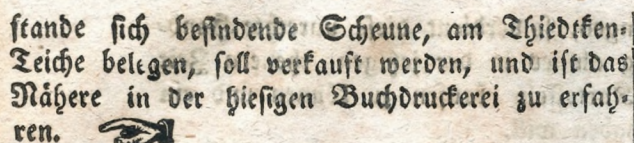 stande sich befindende Scheune, am Thiedtken-
Teiche belegen, soll verkauft werden, und ist das
Nähere in der hiesigen Buchdruckerei zu erfah-
ren.